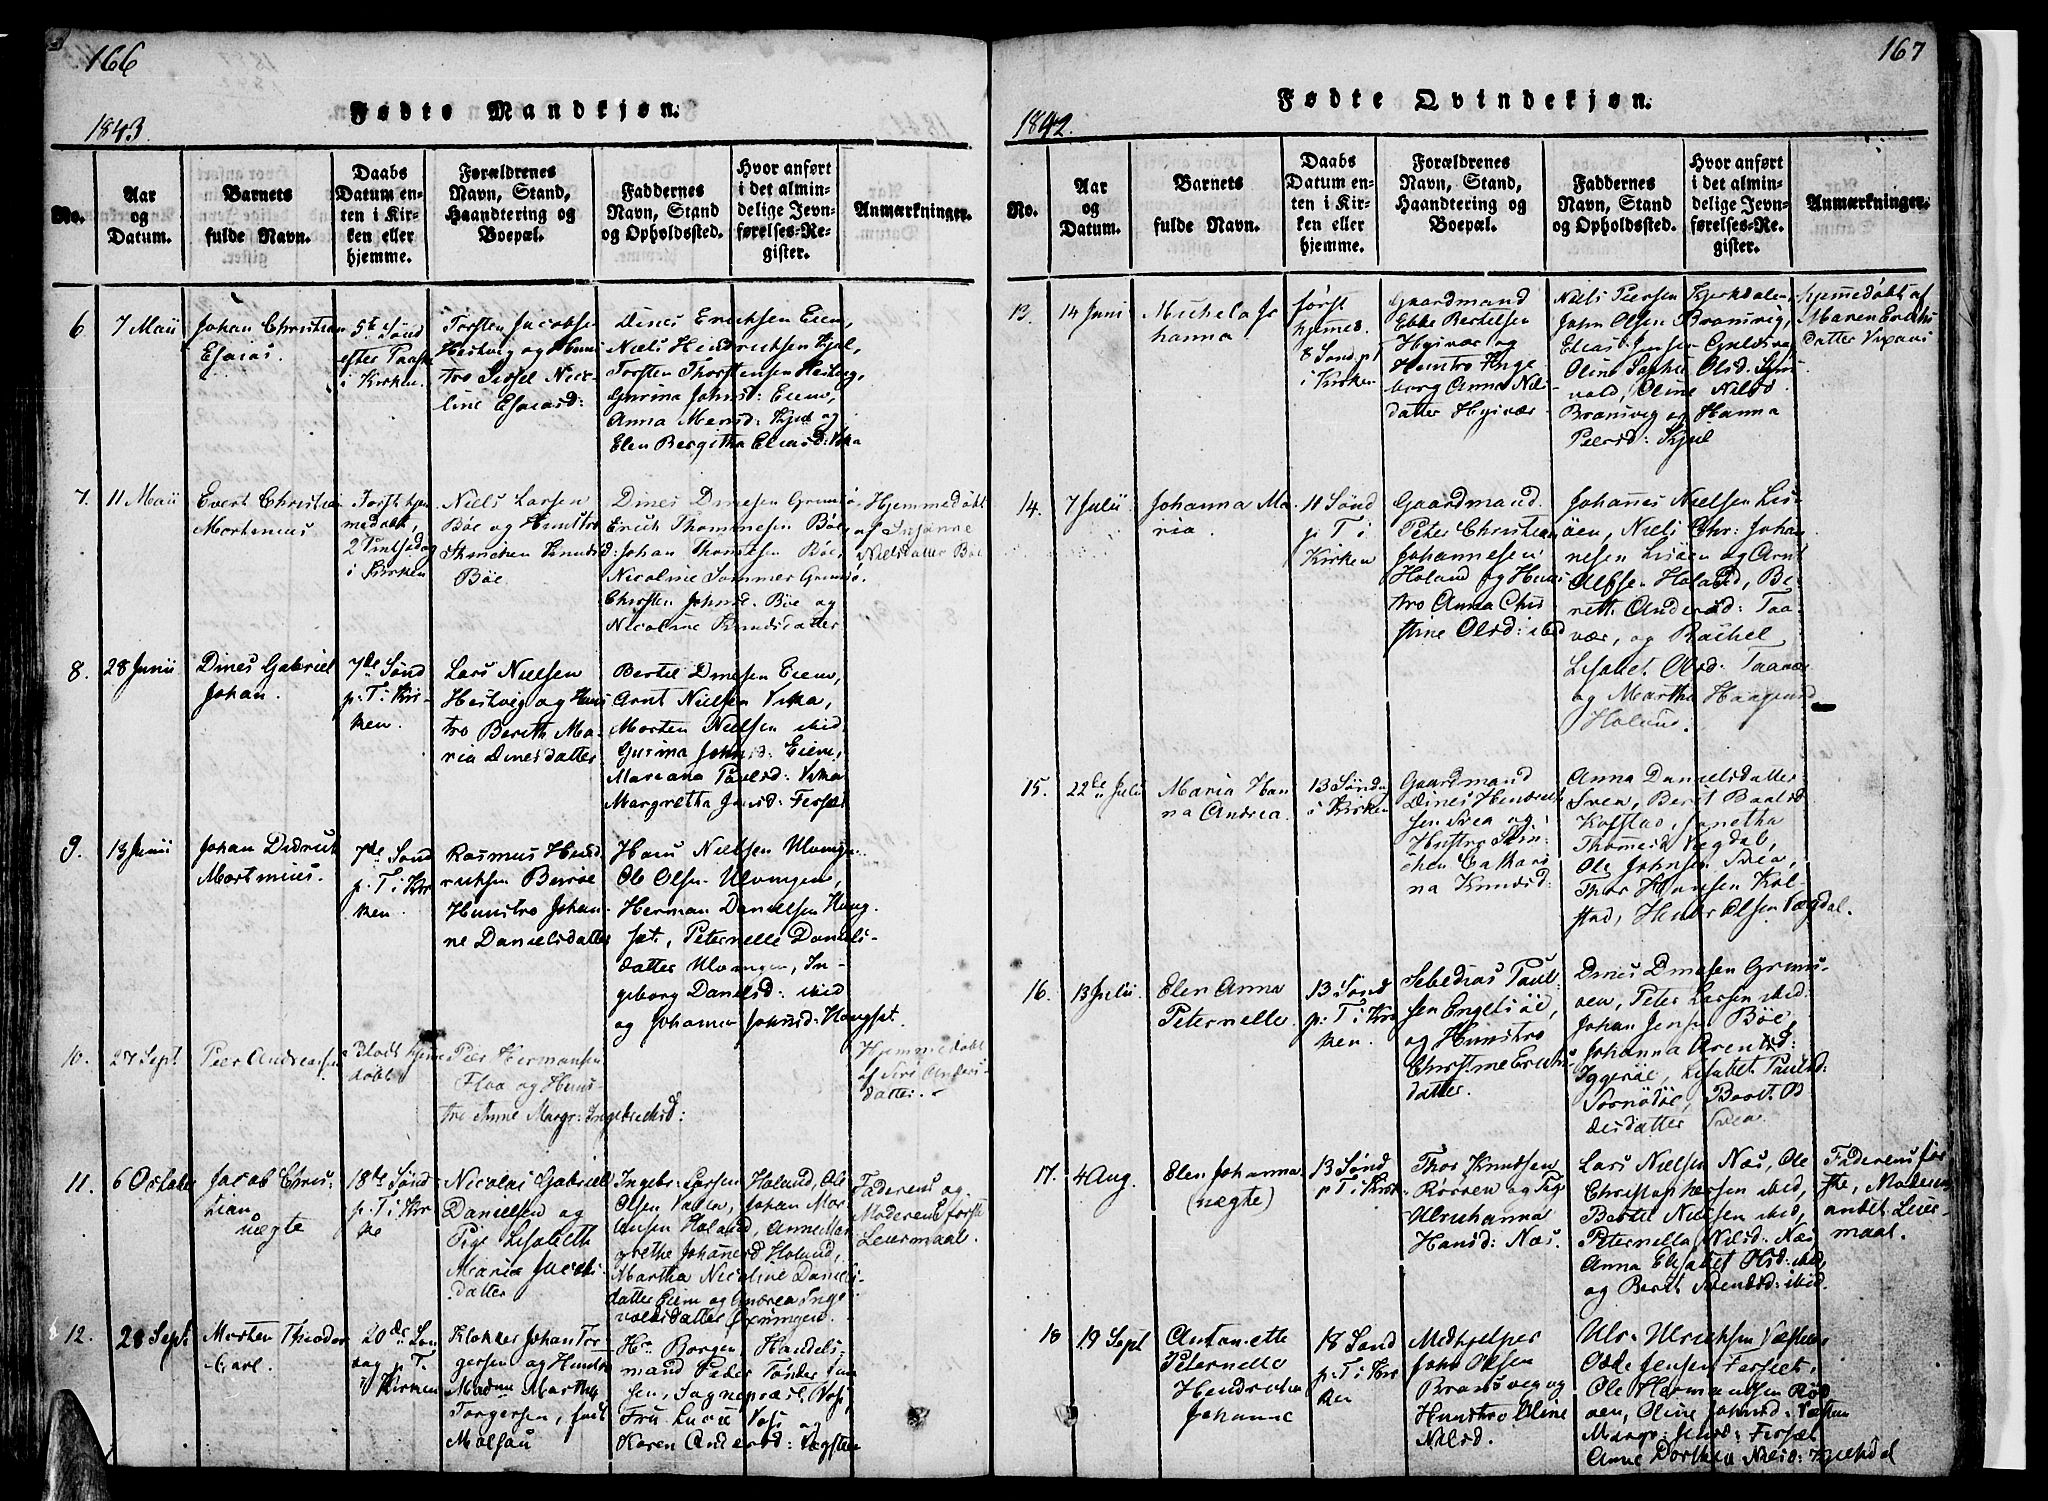 166
Fødte Mandkjøn.
1843.
No.
Aar
og
Datum.
Barnets
fulde Navn.
Daabs
Datum en-
ten i Kir-
ken eller
hjemme.
Forældrenes
Navn, Stand,
Haandtering og
Boepæl.
Faddernes
Navn, Stand
og Opholdssted.
Hvor anført
i det almin-
delige Jevn-
førelses-Re-
gister.
Anmærkninger.
6
7 Maii
Johan Christian
Esaias.
5te Sønd
efter Paaske
i Kirken.
Torsten Jacobsen
Hestvig og Huus
tro Sissel Nico-
line Esaiasd:
Dines Eriksen Eiem,
Niels Hendriksen Kjul,
Torsten Thorstensen Hestvig,
Gurina Johnsd: Eiem,
Anna Monsd: Kjul og
Elen Bergitha Eliasd: Vika
7.
11 Maii
Evert Christian
Mortenius
Først hjem
medøbt,
2 Pintsedag
i Kirken
Niels Larsen
Bøe og Huustro
Knudsd
Bøe
Dines Dinesen Grunsø
Erich Thommesen Bøe,
Johan Thomesen Bøe,
Nicoline Sommer Grunsø,
Chirsten Johnsd: Bøe og
Nicoline Knudsdatter
Hjemmedøbt
af Susanne
Nielsdatter Bøe
8.
28 Junii
Dines Gabriel
Johan.
7de Sønd
p: T: i Kir-
ken.
Lars Nielsen
Hestvig og Huus
tro Bereth Ma-
ria Dinesdatter
Bertil Dinesen Eiem,
Arnt Nielsen Vika,
Morten Nielsen ibid
Gurina Johnsd: Eiem,
Mariana Paulsd: Vika
Margretha Jensd: Forsæt
9.
13 Junii
Johan Didrich
Mortinius.
7de Sønd
p: T i Kir
ken.
Rasmus Hend
riksen Beiroe
Huustro Johan-
ne Danielsdatter
Hans Nielsen Ulvingen
Ole Olsen Ulvingen,
Herman Danielsen Haug-
sæt, Peternelle Daniels-
datter Ulvingen, In-
geborg Danielsd: ibid
og Johanna Johnsd: Haugsæt.
10.
27 Sept.
Peer Andreassen
Blodt hjemme
døbt
Peer Hermansen
Floa og Huus-
tro Anne Margr: Ingebrechtsd:
Hjemmedøbt
af Siri Anders
datter.
11.
6 October
Jacob Chris-
tian
uægte
18de Sønd
p: T i Kir
ke
Nicolai Gabriel
Danielsen og
Pige Lisabeth
Maria Jacobs
datter
Ingebr: Larsen Holand, Ole
Olsen Johan Mor
tensen Holand, Anne Mar
grethe Johansd Holand,
Martha Nicoline Daniels-
datter Eiem og Andrea Inge
voldsdatter Øxningen.
Faderens og
Moderens første
Leiermaal.
12.
28 Sept.
Morten Theodor
Carl.
20de Søn
dag p. T.
i Kirken
Klokker Johan Tor
gersen og Huustro
Madam Martha
Torgersen, født
Hr. Borgen Handels-
mand Peder Tønder Jan
sen, Sognepræst Vosf,
Fru Lucie Vosf og
Karen Andersd:
167
Fødte Qvindekjøn.
1842.
No.
Aar
og
Datum.
Barnets
fulde Navn.
Daabs
Datum en-
ten i Kir-
ken eller
hjemme.
Forældrenes
Navn, Stand,
Haandtering og
Boepæl.
Faddernes
Navn, Stand
og Opholdssted.
Hvor anført
i det almin-
delige Jevn-
førelses-Re-
gister.
Anmærkninger.
13.
14 Juni
Michela Jo
hanna.
først
hjemed.
8 Sønd. p t
i Kirken
Gaardmand
Ebbe Bertelsen
Hysvær og
Huustro Inge
borg Anna Nils
datter Hysvær
Niels Peersen Kjerkdalen
John Olsen Bransvig,
Elias Jensen
Oline Sophie Olsd.
vold, Oline Nilsd
Bransvig og Hanna
Peersd: Kjul
hjemedøbt af
Maren Erichs
datter
14.
7 Julii
Johanna Ma
ria.
11 Sønd
p: T i
Kirken
Gaardmand
Peter Christian
Johannesen
Holand og Huus
tro Anna Chri
stine Olsd: ibid
Johannes Nielsen Lis-
øen, Niels Chr: Johan
nesen Lisøen og Arnt
Olsen Holand, Be-
reth Andersd: Taa-
vær, og Rachel
Lisabet Olsd: Taavær
og Martha Haagensd
Holand.
15.
22de Julii
Maria Han
na Andrea.
13 Sønd
i Kirken
Gaardmand
Dines Hendrik
sen Svea og
Hustro Stin-
chen Cathari
na Knudsd:
Anna Danielsdatter
Svea, Berit Baalsd
Kolstad, Janetha
Thomesd Vægdal,
Ole Johnsen Svea,
Thor Hansen Kol-
stad, Hendr Olsen Vægdal.
16.
13 Julii
Elen Anna
Peternelle.
13 Sønd
p: T i Kir
ken.
Sebedias Paul-
sen Engelsøe,
og Huustro
Christine Erichs
datter.
Dines Dinesen Gruns-
øen, Peter Larsen ibid.
Johan Jensen Bøe,
Johanna Arentsd:
Iggerøe, Lisabet Paulsd:
Svea.
17.
4 Aug.
Elen Johanna
(uægte)
13 Sønd
p T i Kirk
Thor Knudsen
Rørøen og Pige
Ulrichanna
Hansd: Næs.
Lars Nielsen Næs, Ole
Christophersen ibid,
Bertil Nielsen ibid,
Peternella Nilsd: Næs
Anna Elisabet Olsd: ibid,
og Berit Svendsd: ibid.
Faderens før
ste, Moderens
andet Leier-
maal.
18
19 Sept
Antonette
Peternelle
Hendricha
Johanne
18 Sønd
p: T i Kir
ken
Medhjelper
John Olsen
Bransvig og
Huustro Oline
Nilsd.
Ulr. Ulrichsen
Odde Jensen Forsæt,
Ole Hermansen Rød
øen, Oline Johnsd:
Margr: Jensd: Forsæt
Anne Dorthea Nielsd: